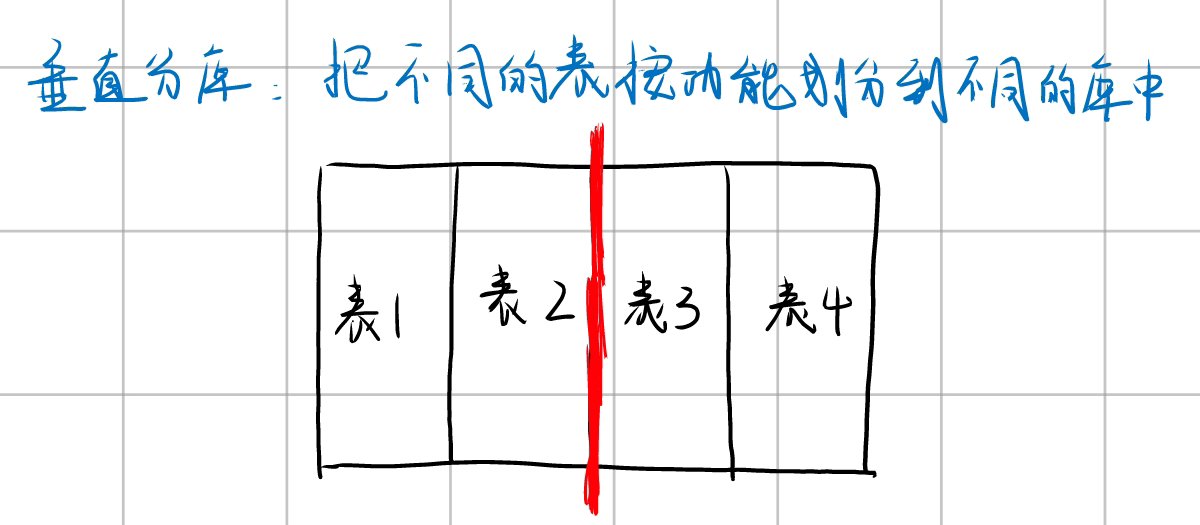 垂直分库：把不同的表按功能划分到不同的库中
表1 表2 表3 表4